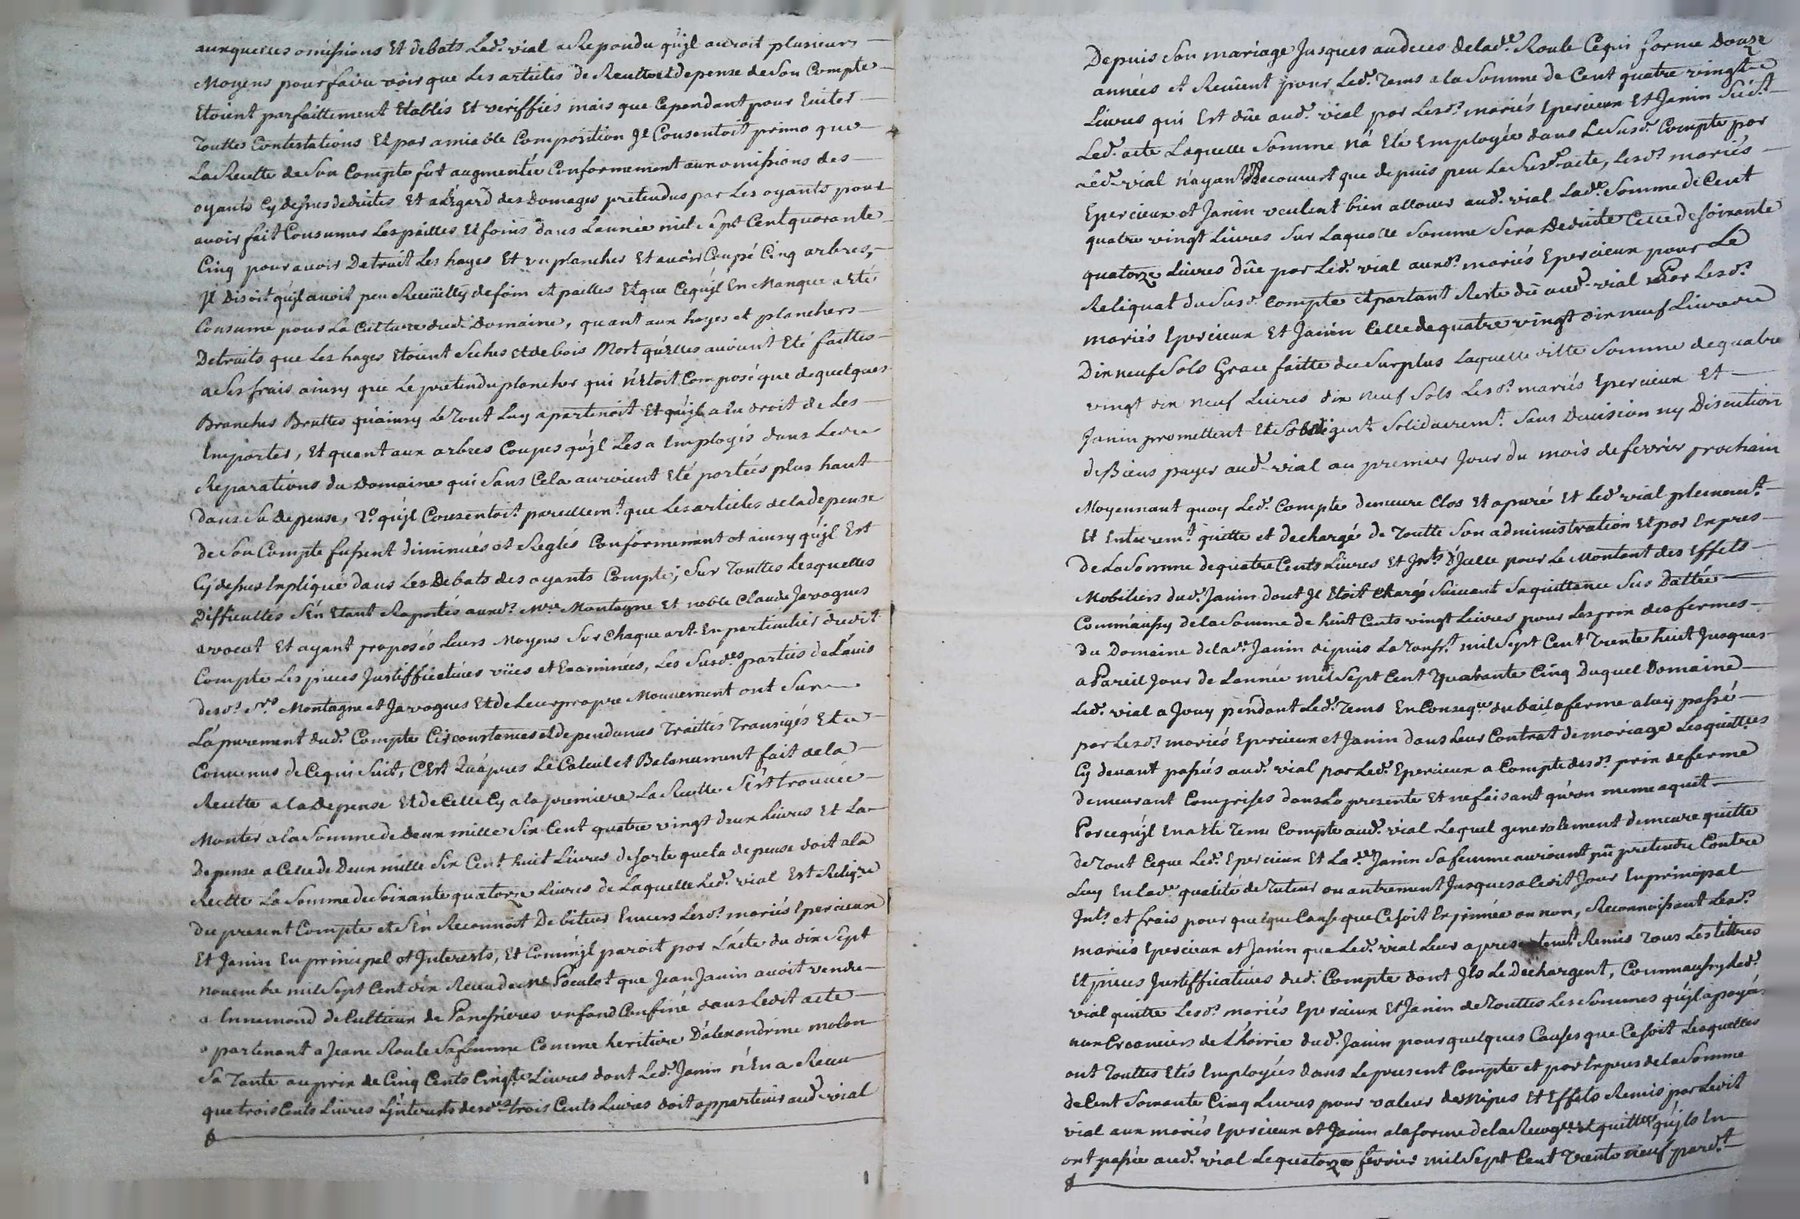 auxquelles omissions Et debats Led.t vial a Repondu qu'jl auroit plusieurs
Moyens pour faire voir que Les articles de Recette et depense de Son Compte
Etoint parfaittement Etablis Et veriffiés mais que Cependant pour Eviter
Touttes Contestations Et par amiable Composition Jl Consentoit primo que
La Recette de Son Compte fut augmentée Conformement aux omissions des
oyants Cy dessus deduites Et a L'Egard des Domages pretendus par Les oyants pour
avoir fait Consumer Les pailles Et foins dans L'année mil Sept Cent quarante
Cinq pour avoir Detruit Les hayes Et un plancher Et avoir Coupé Cinq arbres,
Jl Disoit qu'jl avoit peu Recüeilly de foin Et pailles Et que Ce qu'jl En Manque a Eté
Consumé pour La Culture dud.t Domaine, quant aux hayes et planchers
Detruits que Les hayes Etoint Seches et de bois Mort qu'Elles avoint Eté faittes
a Ses frais ainsy que Le pretendu plancher qui n'Etoit Composé que de quelques
Branches Bruttes qu'ainsy Le Tout Luy apartenoit Et qu'jl a Eu droit de Les
Emporter, Et quant aux arbres Coupes qu'jl Les a Employés dans Les
Reparations du Domaine qui Sans Cela auroient Eté portées plus haut
dans Sa depense, 2.o qu'jl Consentoit pareillem.t que Les articles de la depense
de Son Compte fussent diminués et Reglés Conformement et ainsy qu'jl Est
Cy dessus Expliqué dans Les Debats des oyants Compte; Sur Touttes Lesquelles
Difficultés S'En Etant Raportés aux d.s M.re Montagne Et noble Claude Javogues
avocat Et ayant proposés Leurs Moyens Sur Chaque art. En particulier dudit
Compte Les pieces Justifficatives vües et Examinées, Les Susd.es parties de L'avis
desd.s S.rs Montagne et Javogues Et de Leur propre Mouvement ont Sur
L'apurement dud.t Compte Circonstances et dependances Traittés Transigés Et
Convenus de Ce qui Suit, C'Est Qu'apres Le Calcul et Balancement fait de la
Recette a la Depense Et de Celle Cy a la premiere La Recette S'Est trouvée
Monter a la Somme de Deux mille Six Cent quatre vingt deux Livres Et La
Depense a Celle de Deux mille Six Cent huit Livres de Sorte que la depense doit a la
Recette La Somme de Soixante quatorze Livres de Laquelle Led.t vial Est Reliq.re
Du present Compte et S'En Reconnoit Debiteur Envers Lesd.s mariés Epercieux
Et Janin En principal et Interests, Et Comm'jl paroit por L'acte du dix Sept
novembre mil Sept Cent dix Receu de M.e Poculot que Jean Janin avoit vendu
a Ennemond deCultieux de Panessieres un fond Confiné dans Ledit acte
apartenant a Jeane Roule Sa femme Comme heritiere D'alexandrine molon
Sa Tante au prix de Cinq Cents Cinq.te Livres dont Led.t Janin n'En a Receu
que trois Cents Livres L'jnterests desd.es trois Cents Livres doit appartenir aud.t vial
Depuis Son mariage Jusques au deces de la d.te Roule Ce qui forme Douze
années Et Revient pour Led.t Tems a la Somme de Cent quatre vingt
Livres qui Est düe aud.t vial par Lesd.s mariés Epercieux Et Janin Suiv.t
Led.t acte Laquelle Somme n'a Eté Employée dans Le Susd.t Compte por
Led.t vial n'ayant Recouvert que depuis peu Le Susd.t acte, Lesd.s mariés
Epercieux et Janin veulent bien allouer aud.t vial Lad.te Somme de Cent
quatre vingt Livres Sur Laquelle Somme Sera Deduite Celle de Soixante
quatorze Livres düe par Led.t vial aux d.s mariés Epercieux pour Le
Reliquat du Susd.t Compte Et partant Reste dü aud.t vial Par Lesd.s
mariés Epercieux Et Janin Celle de quatre vingt dix neuf Livres
Dix neuf Sols Grace faitte du Surplus Laquelle ditte Somme de quatre
vingt dix neuf Livres dix neuf Sols Lesd.s mariés Epercieux Et
Janin promettent Et S'obligent Solidairem.t Sans Division ny Discution
de Biens payer aud.t vial au premier Jour du mois de fevrier prochain
Moyennant quoy Led.t Compte demeure Clos Et apuré Et Led.t vial pleinem.t
Et Entierem.t quitte et dechargé de Toutte Son administration Et par Expres
De La Somme de quatre Cents Livres Et Jnts. D'Jcelle pour Le Montant des Effets
Mobiliers dud.t Janin dont Jl Etoit Chargé Suivant Sa quittance Sus Dattée
Comm'aussy de la Somme de huit Cents vingt Livres pour Les prix des fermes
Du Domaine de lad.te Janin depuis La Touss.t mil Sept Cent Trente huit Jusques
a Pareil Jour de L'année mil Sept Cent Quarante Cinq Duquel Domaine
Led.t vial a Jouy pendant Led.t Tems En Conseq.ce du bail a ferme a luy passé
par Lesd.s mariés Epercieux et Janin dans Leur Contrat de mariage Les quittces
Cy devant passées aud.t vial par Led.t Epercieux a Compte desd.s prix de ferme
demeurant Comprises dans La presente Et ne faisant qu'un meme aquit
Parce qu'jl En a Eté Tenu Compte aud.t vial Lequel generalement demeure quitte
de Tout Ce que Led.t Epercieux Et La d.te Janin Sa femme auroient pü pretendre Contre
Luy En lad.te qualité de Tuteur ou autrement Jusques a Cedit Jour En principal
Jnts. et frais pour quelque Cause que Ce Soit Exprimée ou non, Reconnoissant Lesd.s
mariés Epercieux et Janin que Led.t vial Leur a presentem.t Remis Tous Les tittres
Et pieces Justifficatives dud.t Compte dont Jls Le Dechargent, Comm'aussy Led.t
vial quitte Lesd.s mariés Epercieux Et Janin de Touttes Les Sommes qu'jl a payé
aux Creanciers de L'hoirie dud.t Janin pour quelques Causes que Ce Soit Lesquelles
ont Touttes Etés Employées dans Le present Compte et par Expres de la Somme
de Cent Soixante Cinq Livres pour valeur des Nipes Et Effets Remis par Ledit
vial aux mariés Epercieux et Janin a la forme de la Recog.ce et quittce qu'jls En
ont passée aud.t vial Le quatorze fevrier mil Sept Cent Trente neuf pard.t